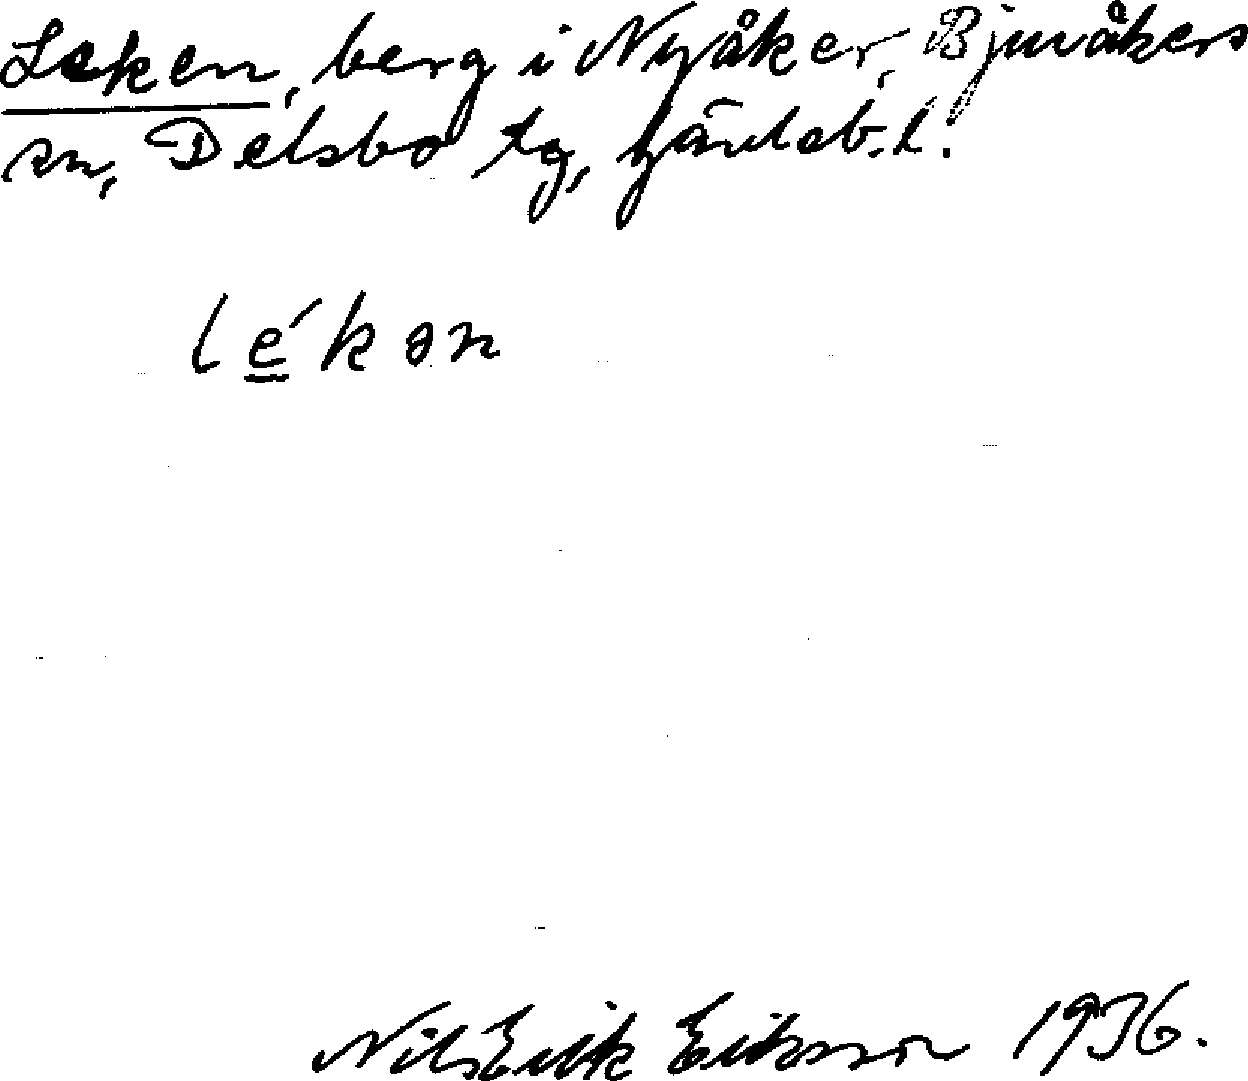 Leken, berg i Nyåker, Bjuråkers
sn, Delsbo tg, Gävleb. l.
lékən
Nils Erik Eriksson 1936.